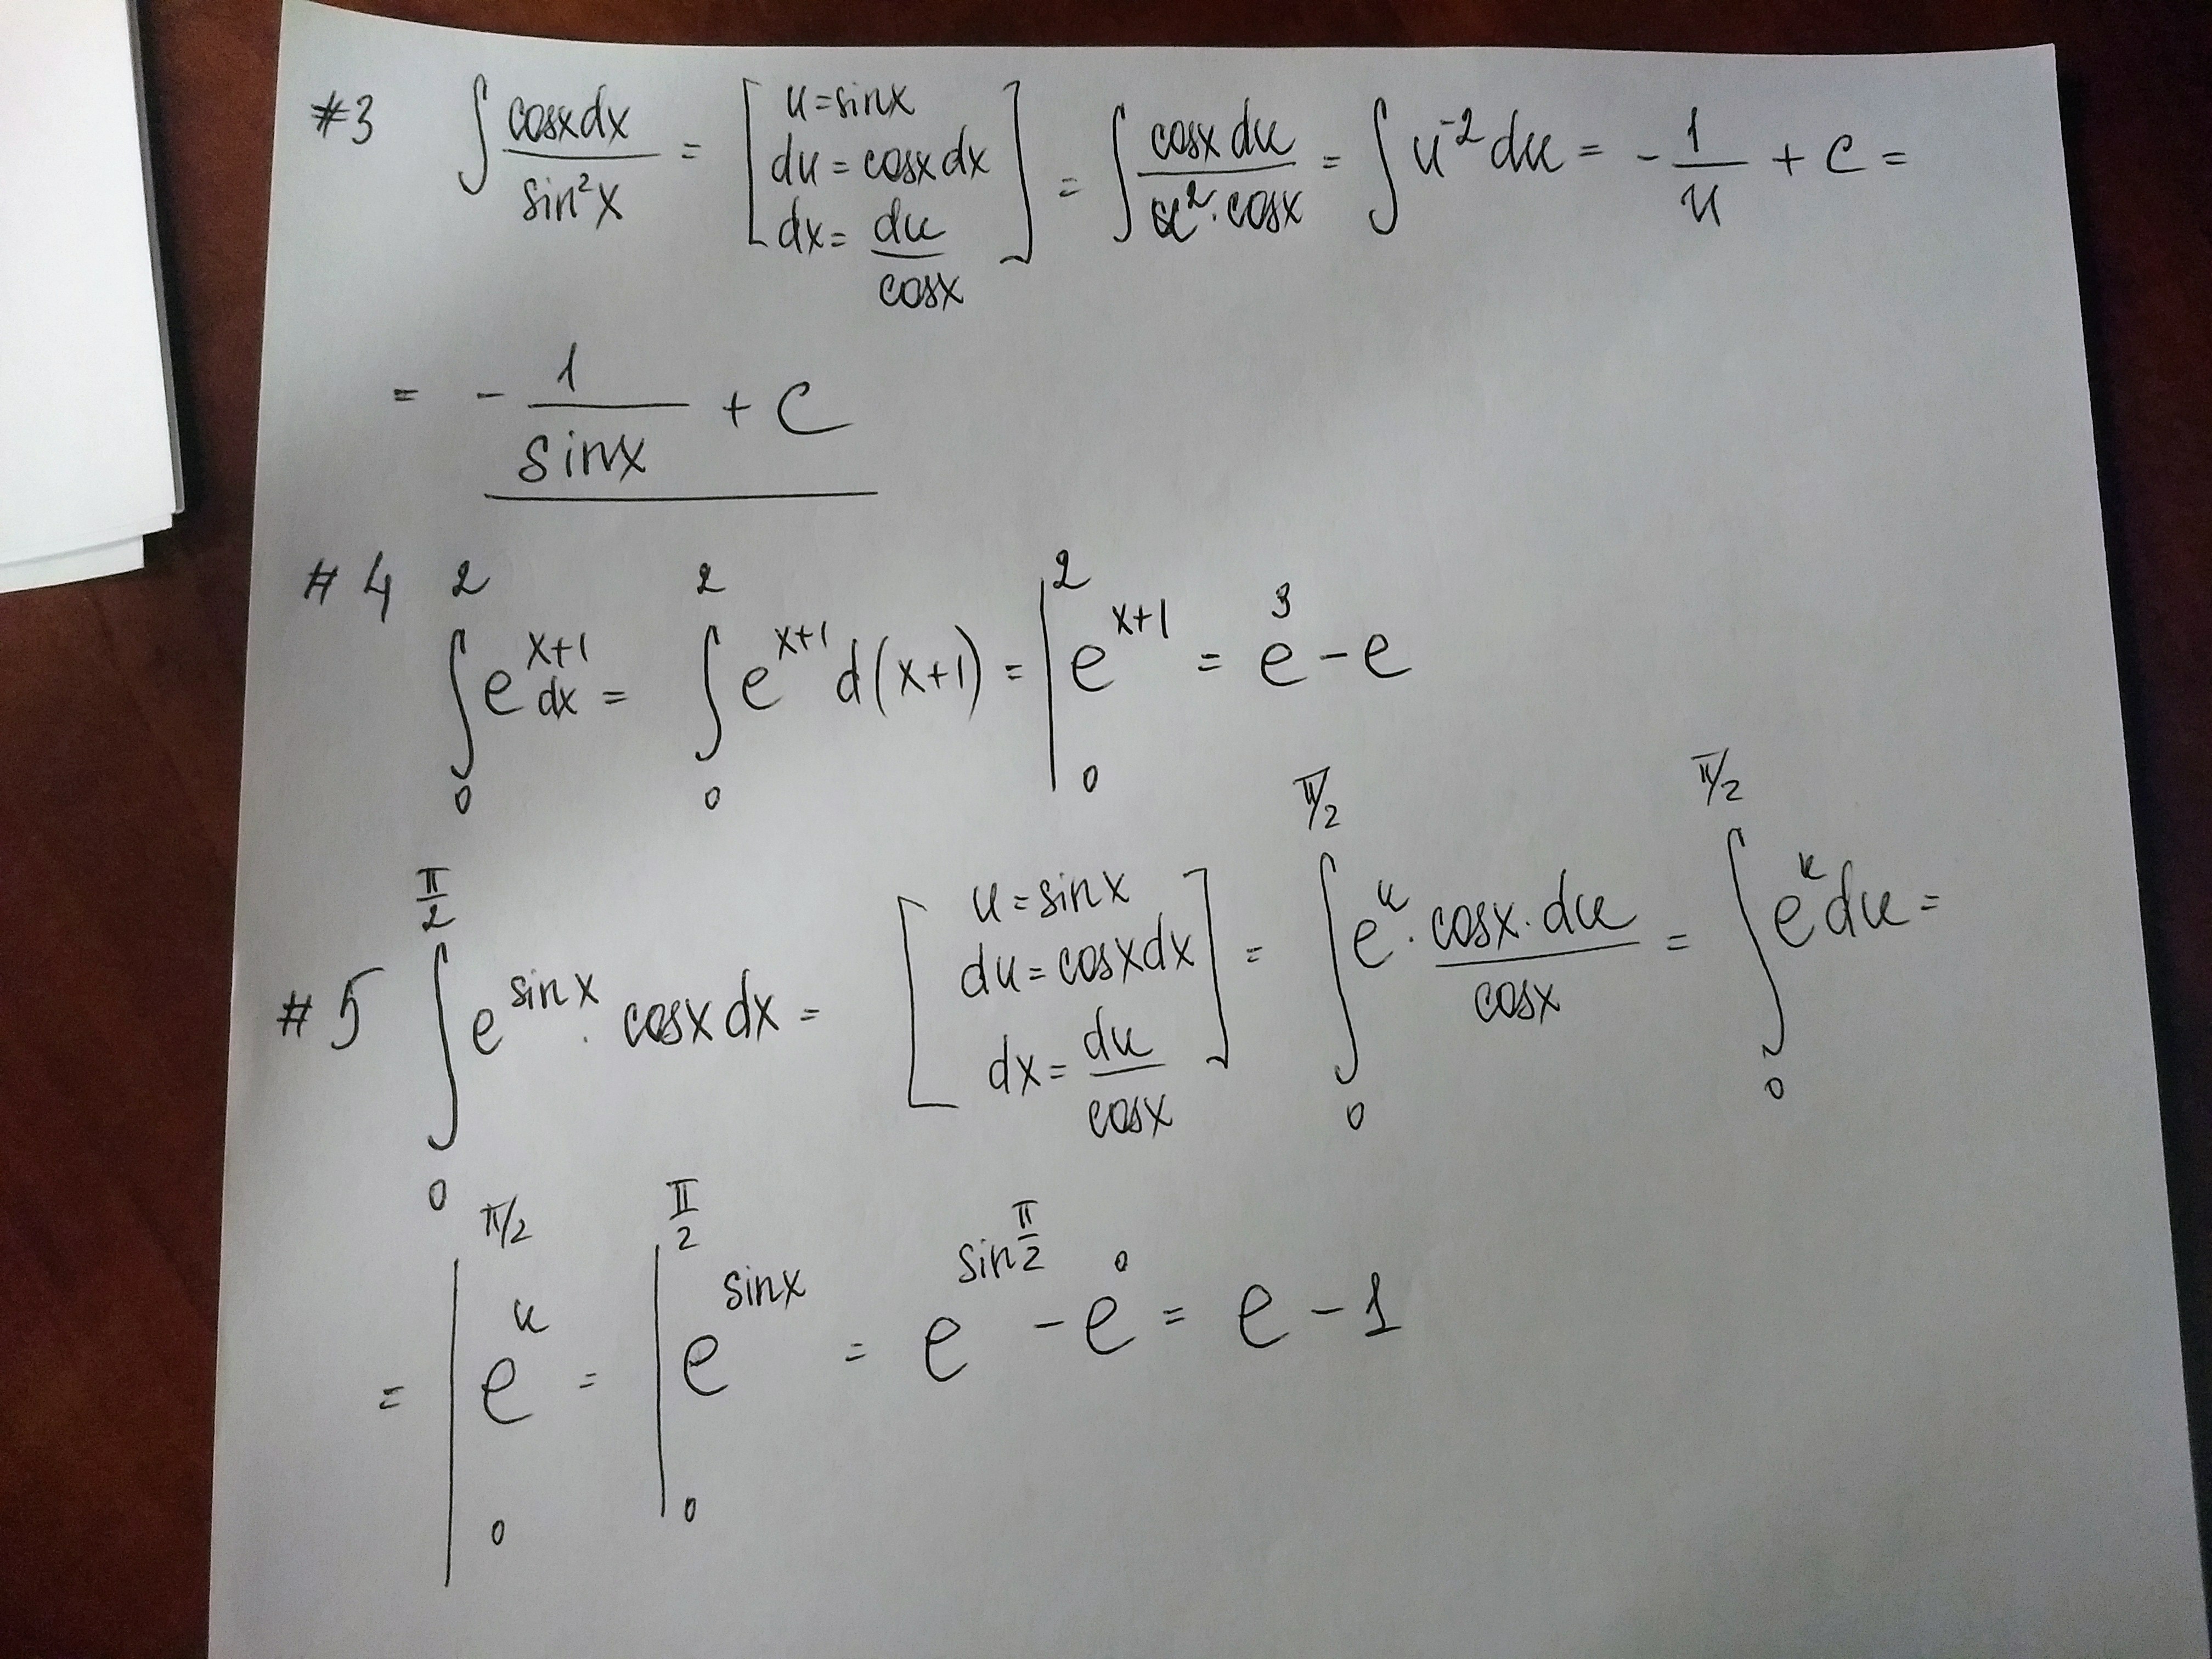 #3 ∫ cosxdx / sin²x = [ u=sinx du=cosxdx dx= du/cosx ] = ∫ cosx du / u²·cosx = ∫ u⁻² du = - 1/u + C =
= - 1/sinx + C
#4 ∫₀² e^(x+1) dx = ∫₀² e^(x+1) d(x+1) = |₀² e^(x+1) = e³ - e
#5 ∫₀^(π/2) e^(sinx) · cosx dx = [ u=sinx du=cosxdx dx= du/cosx ] = ∫₀^(π/2) e^u · cosx·du / cosx = ∫₀^(π/2) e^u du =
= |₀^(π/2) e^u = |₀^(π/2) e^(sinx) = e^(sin π/2) - e⁰ = e - 1